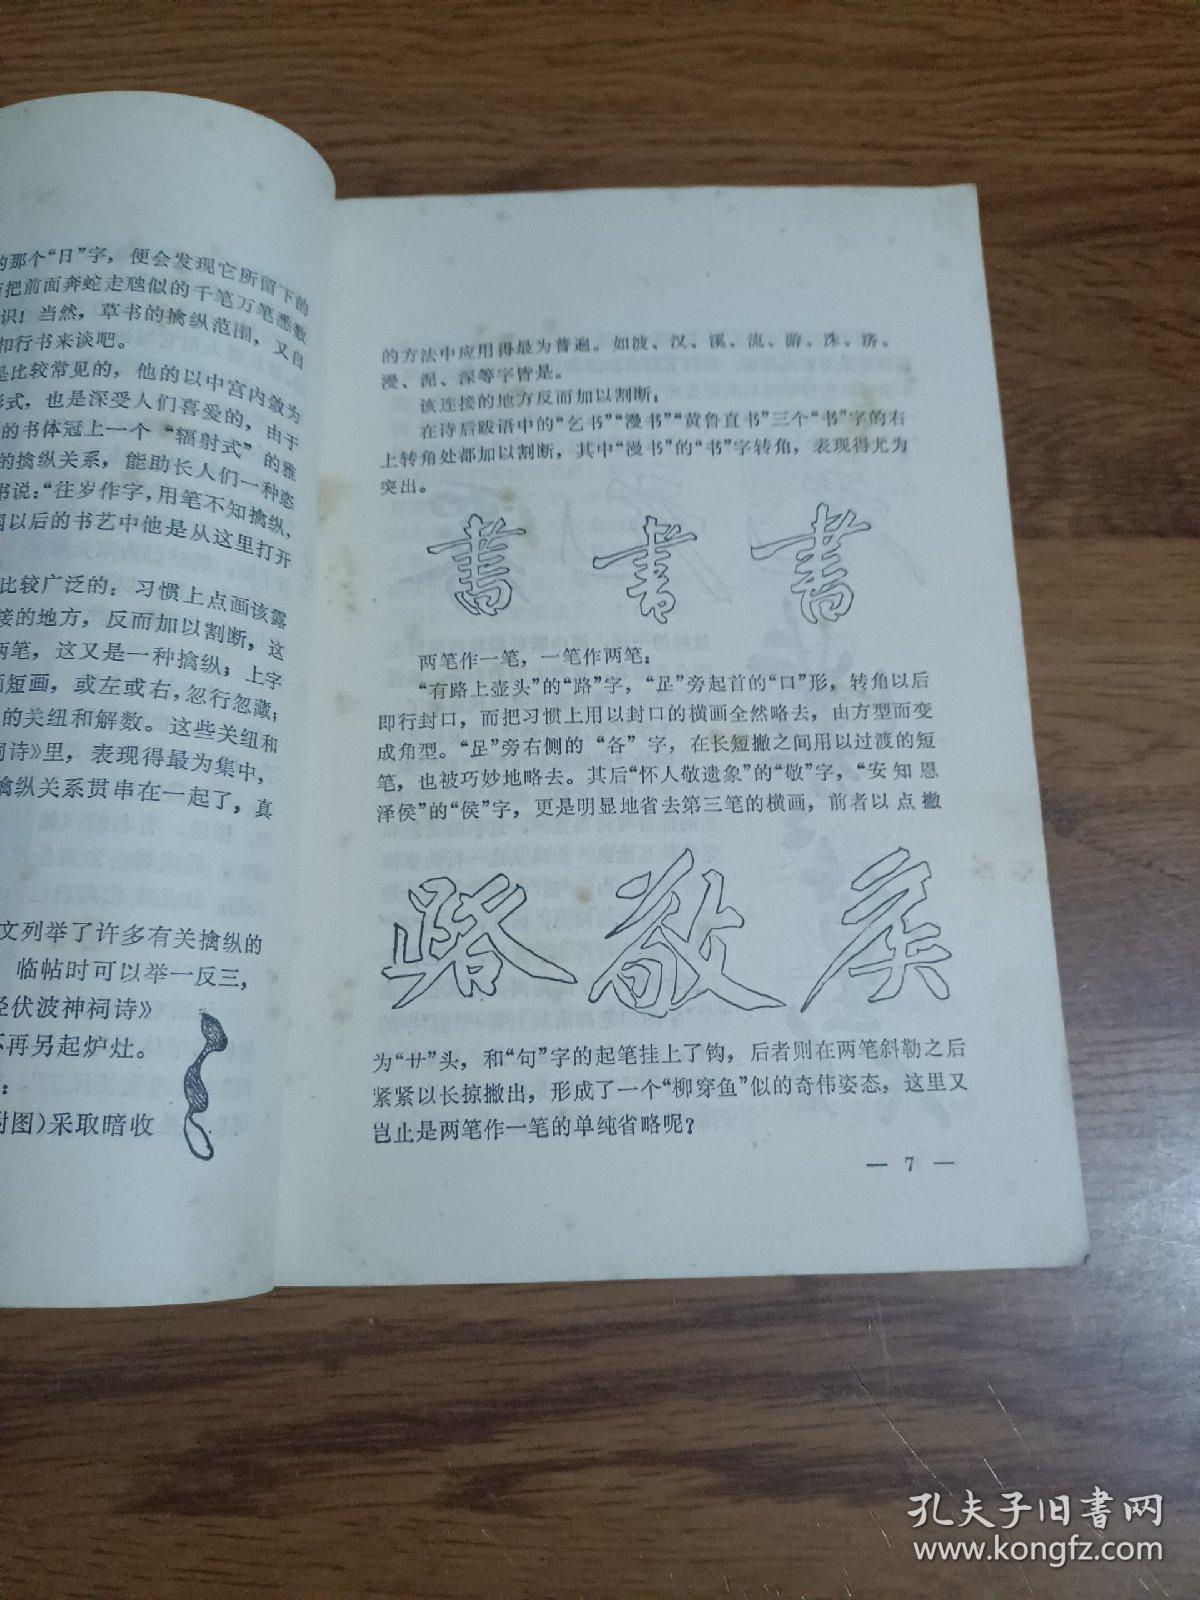 的那个“日”字，便会发现它所留下的
把前面奔蛇走虺似的千笔万笔悉数
识！当然，草书的擒纵范围，又自
和行书来谈吧。
是比较常见的，他的以中宫内敛为
形式，也是深受人们喜爱的，由于
的书体冠上一个“辐射式”的雅
的擒纵关系，能助长人们一种恣
书说：“往岁作字，用笔不知擒纵，
以后的书艺中他是从这里打开
比较广泛的：习惯上点画该露
接的地方，反而加以割断，这
两笔，这又是一种擒纵；上字
短画，或左或右，忽行忽藏；
的关纽和解数。这些关纽和
祠诗》里，表现得最为集中，
擒纵关系贯串在一起了，真
文列举了许多有关擒纵的
临帖时可以举一反三，
经伏波神祠诗》
不再另起炉灶。
：
附图）采取暗收
的方法中应用得最为普遍。如波、汉、溪、流、游、洙、济、
漫、泥、深等字皆是。
该连接的地方反而加以割断；
在诗后跋语中的“乞书”“漫书”“黄鲁直书”三个“书”字的右
上转角处都加以割断，其中“漫书”的“书”字转角，表现得尤为
突出。
書 書 書
两笔作一笔，一笔作两笔；
“有路上壶头”的“路”字，“足”旁起首的“口”形，转角以后
即行封口，而把习惯上用以封口的横画全然略去，由方型而变
成角型。“足”旁右侧的“各”字，在长短撇之间用以过渡的短
笔，也被巧妙地略去。其后“怀人敬遗象”的“敬”字，“安知恩
泽侯”的“侯”字，更是明显地省去第三笔的横画，前者以点撇
路 敬 侯
为“艹”头，和“句”字的起笔挂上了钩，后者则在两笔斜勒之后
紧紧以长掠撇出，形成了一个“柳穿鱼”似的奇伟姿态，这里又
岂止是两笔作一笔的单纯省略呢？
— 7 —
孔夫子旧书网
www.kongfz.com